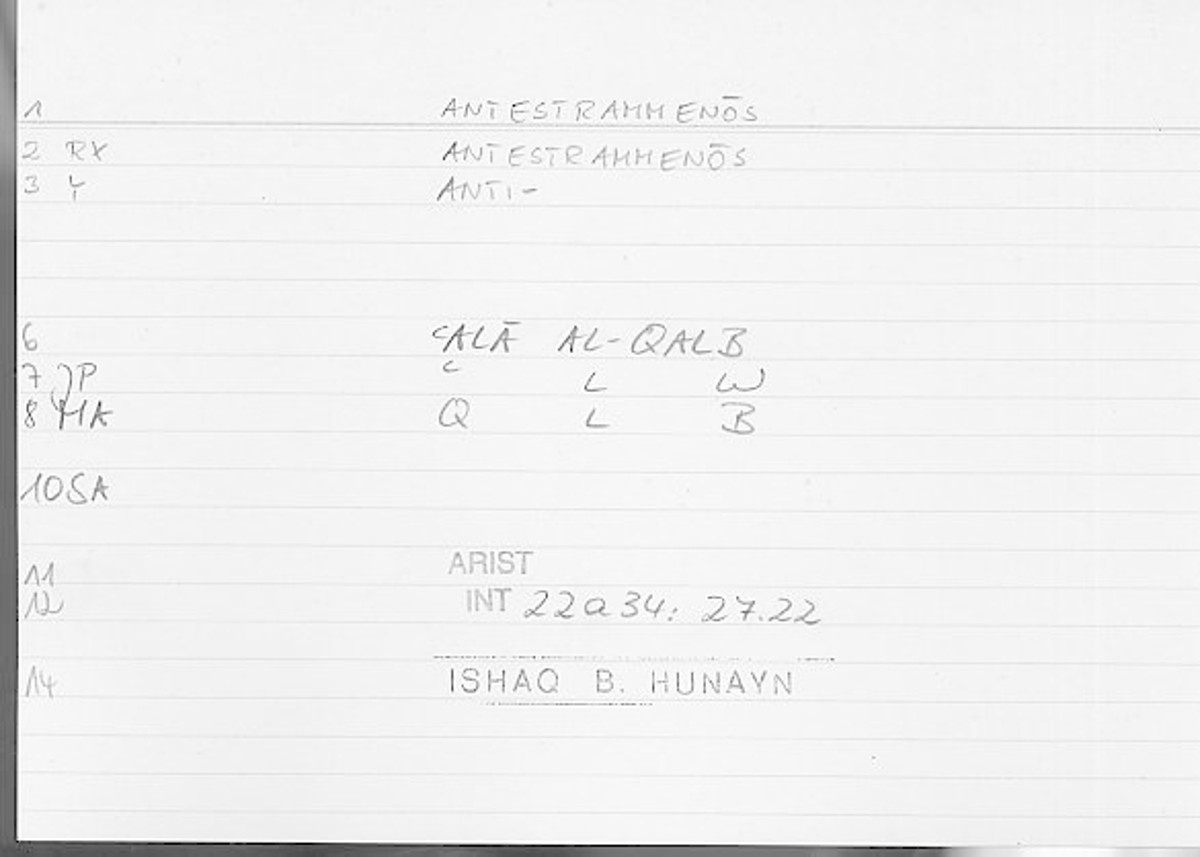 1 ANTESTRAMMENŌS
2 RX ANTESTRAMMENŌS
3 Y ANTI-
6 ʿALĀ AL-QALB
7 JP ʿ L W
8 MA Q L B
10 SA
11 ARIST
12 INT 22a34: 27.22
14 ISHAQ B. HUNAYN